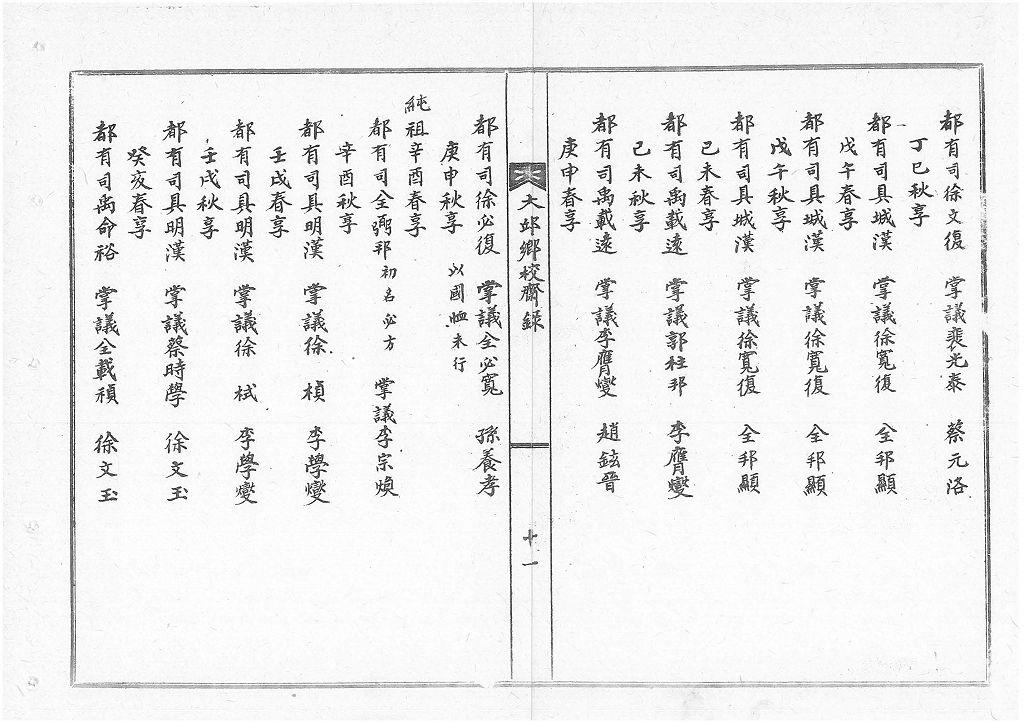 都有司徐文復 掌議裵光泰 蔡元洛
丁巳秋享
都有司具城漢 掌議徐寬復 全邦顯
戊午春享
都有司具城漢 掌議徐寬復 全邦顯
戊午秋享
都有司具城漢 掌議徐寬復 全邦顯
己未春享
都有司禹載遠 掌議郭柱邦 李膺爕
己未秋享
都有司禹載遠 掌議李膺爕 趙鉉晉
庚申春享
大邱鄕校齋錄
十一
都有司徐必復 掌議全必寬 孫養孝
庚申秋享 以國恤未行
純祖辛酉春享
都有司全弼邦 初名必方 掌議李宗煥
辛酉秋享
都有司具明漢 掌議徐 楨 李學爕
壬戌春享
都有司具明漢 掌議徐 栻 李學爕
壬戌秋享
都有司具明漢 掌議蔡時學 徐文玉
癸亥春享
都有司禹命裕 掌議全載禎 徐文玉